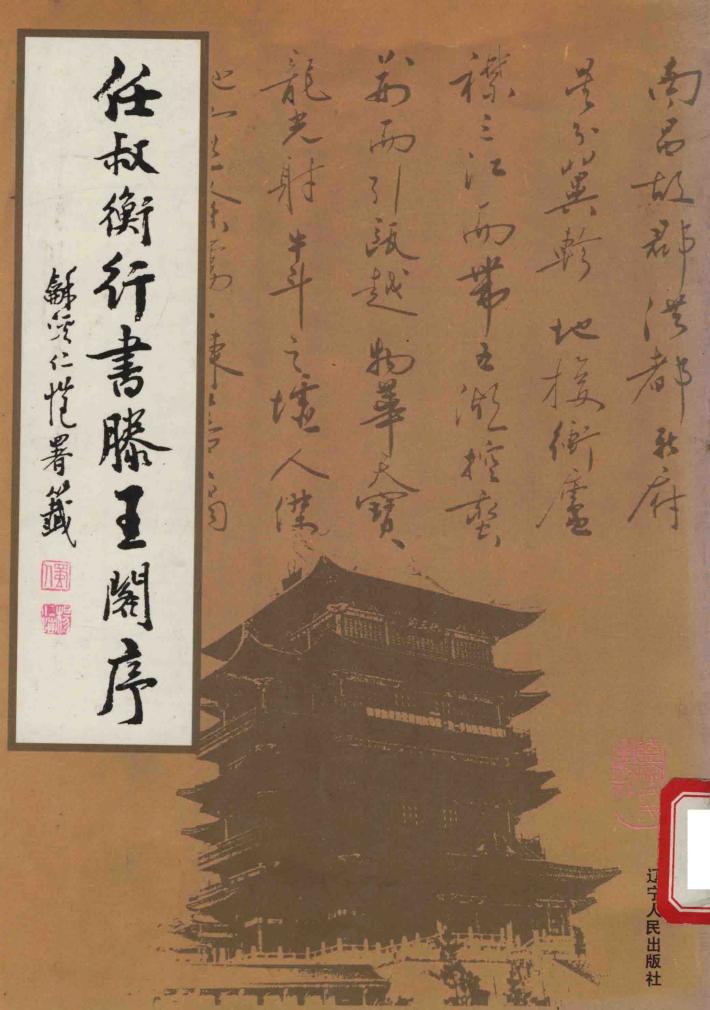 任叔衡行書滕王閣序
龢溪仁愷署籤
南昌故郡洪都新府
星分翼軫地接衡廬
襟三江而帶五湖控蠻
荊而引甌越物華天寶
龍光射牛斗之墟人傑
辽宁人民出版社